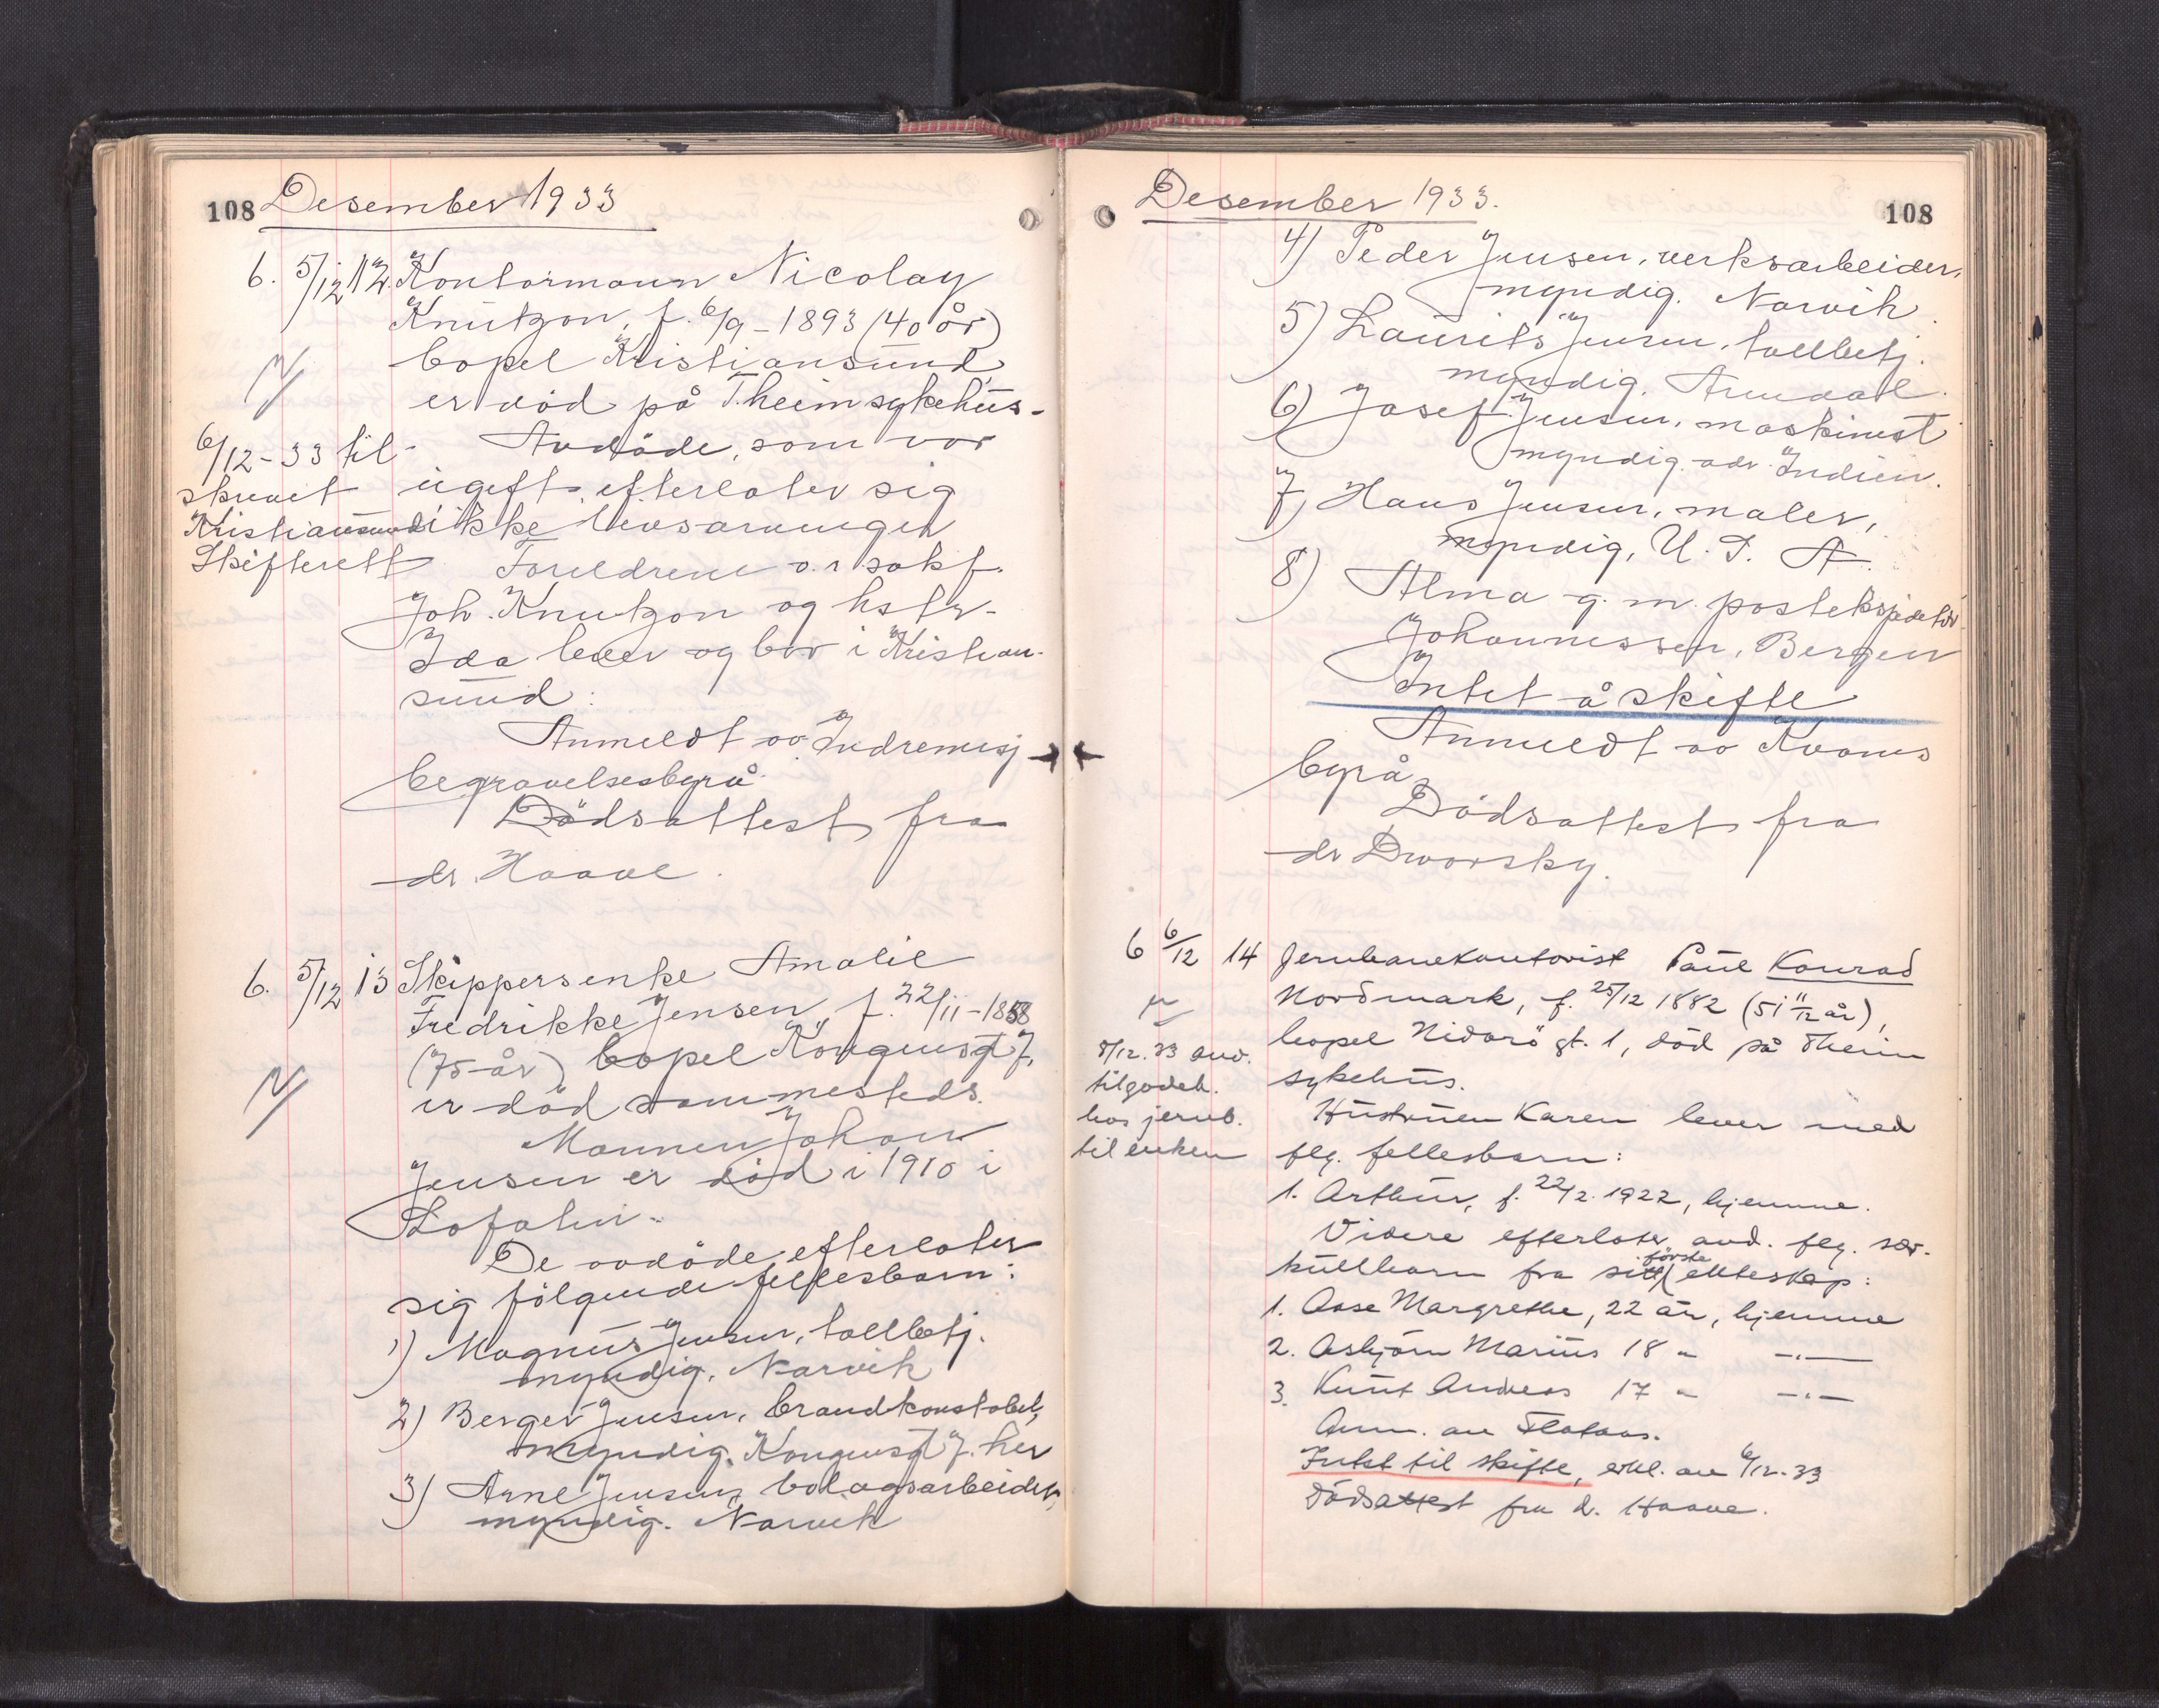 108 Desember 1933
6. 5/12 12. Kontormann Nicolay
Knutzon, f. 6/9-1893 (40 år)
bopel Kristiansund,
er död på T.heim sykehus-
N/
6/12-33 til-
skrevet
Kristiansund
Skifterett
Avdöde, som var
ugift, efterlater sig
ikke livsarvinger
Foreldrene o.r.sakf.
Joh. Knutzon og hstr.
Ida lever og bor i Kristian-
sund:
Anmeldt av Indremisj
begravelsesbyrå.
Dödsattest fra
dr. Haave.
6. 5/12 13 Skippersenke Amalie
Fredrikke Jensen f. 22/11-1858
(75 år) bopel Kongensgt 7,
er död sammesteds.
N/
Mannen Johan
Jensen er död i 1910 i
Lofoten.
De avdöde efterlater
sig fölgende fellesbarn:
1) Magnus Jensen, tollbetj.
myndig, Narvik
2) Berger Jensen, brandkonstabel,
myndig. Kongensgt 7. her
3) Arne Jensen, bolagsarbeider,
myndig. Narvik
Desember 1933. 108
4) Peder Jensen, verksarbeider,
myndig. Narvik.
5) Laurits Jensen, tollbetj.
myndig. Arendal.
6) Josef Jensen, maskinist
myndig. adr. Indien.
7) Hans Jensen, maler,
myndig, U. S. A.
8) Alma g. m. postekspeditör
Johannessen, Bergen
Intet å skifte
Anmeldt av Kvams
byrå.
Dödsattest fra
dr Dworsky.
6 6/12 14 Jernbanekontorist Paul Konrad
Nordmark, f. 25/12 1882 (51 11/12 år),
bopel Nidarö gt. 1, död på Theim
sykehus.
8/12.33 avd.
tilgodeh.
hos jernb.
til enken
Hustruen Karen lever med
flg. fellesbarn:
1. Arthur, f. 22/2. 1922, hjemme.
Videre efterlater avd. flg. sær-
kullbarn fra sitt förste ekteskap:
1. Aase Margrethe, 22 år, hjemme
2. Asbjörn Marius 18 " -"-
3. Knut Andreas 17 " -"-
Anm. av Flataas.
Intet til skifte, erkl. av 6/12-33
Dödsattest fra d. Haave.